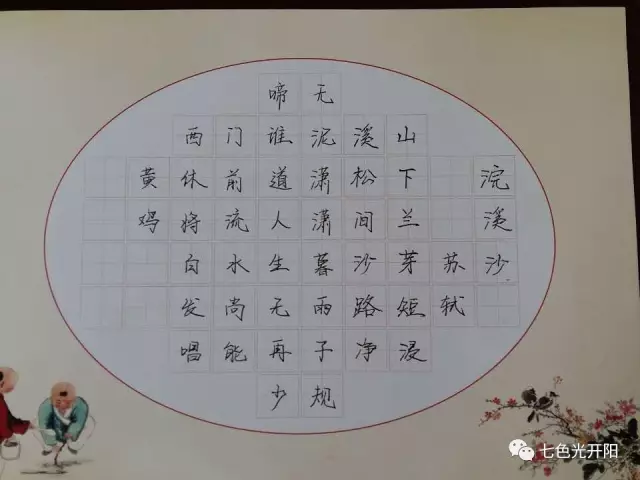 浣溪沙
苏轼
山下兰芽短浸
溪松间沙路净
无泥潇潇暮雨子规
啼谁道人生无再少
门前流水尚能
西休将白发唱
黄鸡
七色光开阳